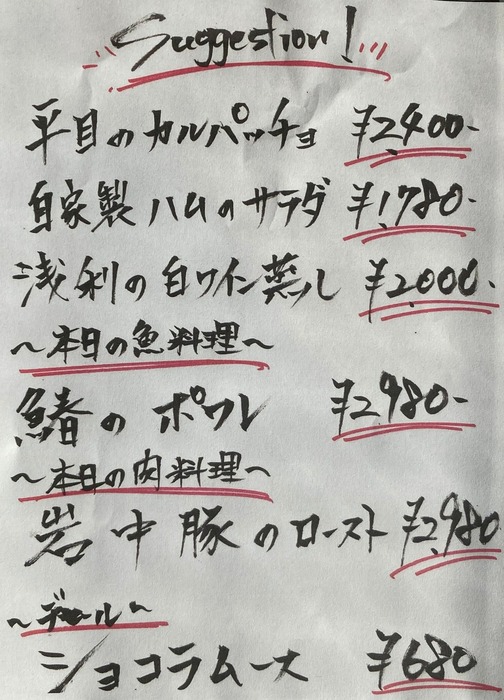 Suggestion!
平目のカルパッチョ ¥2,400-
自家製ハムのサラダ ¥1,780-
浅利の白ワイン蒸し ¥2,000-
～本日の魚料理～
鰆のポワレ ¥2,980-
～本日の肉料理～
岩中豚のロースト ¥2,980
～デール～
ショコラムース ¥680